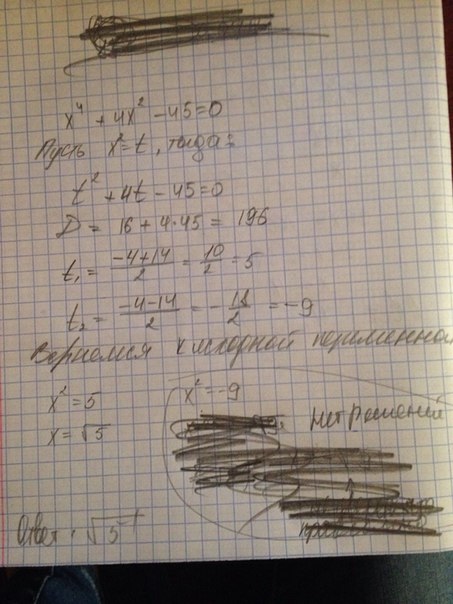 x⁴ + 4x² - 45 = 0
Пусть x² = t, тогда:
t² + 4t - 45 = 0
D = 16 + 4·45 = 196
t₁ = (-4+14)/2 = 10/2 = 5
t₂ = (-4-14)/2 = -18/2 = -9
Вернемся к исходной переменной
x² = 5
x = √5
x² = -9
Нет решений
Ответ: √5